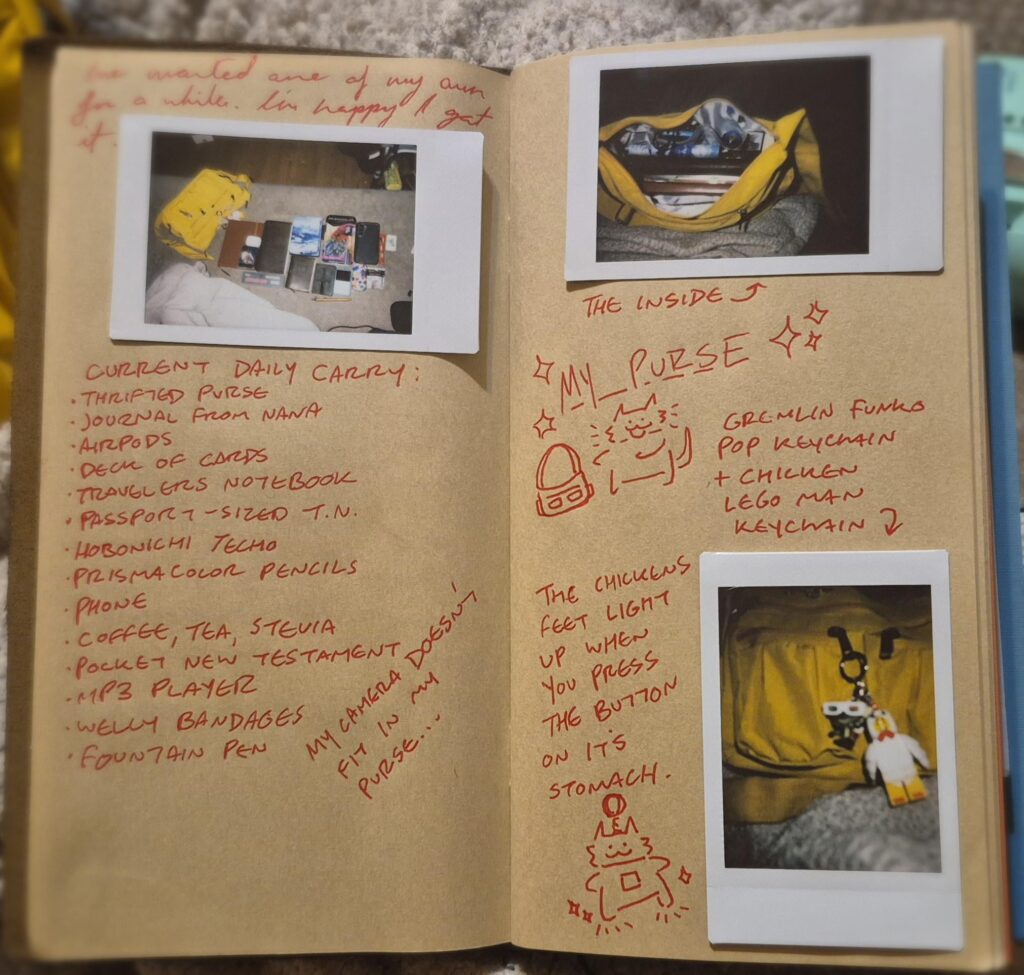 wanted one of my own
for a while. I'm happy I got
it.
CURRENT DAILY CARRY:
• THRIFTED PURSE
• JOURNAL FROM NANA
• AIRPODS
• DECK OF CARDS
• TRAVELERS NOTEBOOK
• PASSPORT-SIZED T.N.
• HOBONICHI TECHO
• PRISMACOLOR PENCILS
• PHONE
• COFFEE, TEA, STEVIA
• POCKET NEW TESTAMENT
• MP3 PLAYER
• WELLY BANDAGES
• FOUNTAIN PEN
MY CAMERA DOESN'T
FIT IN MY
PURSE...
THE INSIDE
MY PURSE
GREMLIN FUNKO
POP KEYCHAIN
+ CHICKEN
LEGO MAN
KEYCHAIN
THE CHICKENS
FEET LIGHT
UP WHEN
YOU PRESS
THE BUTTON
ON IT'S
STOMACH.